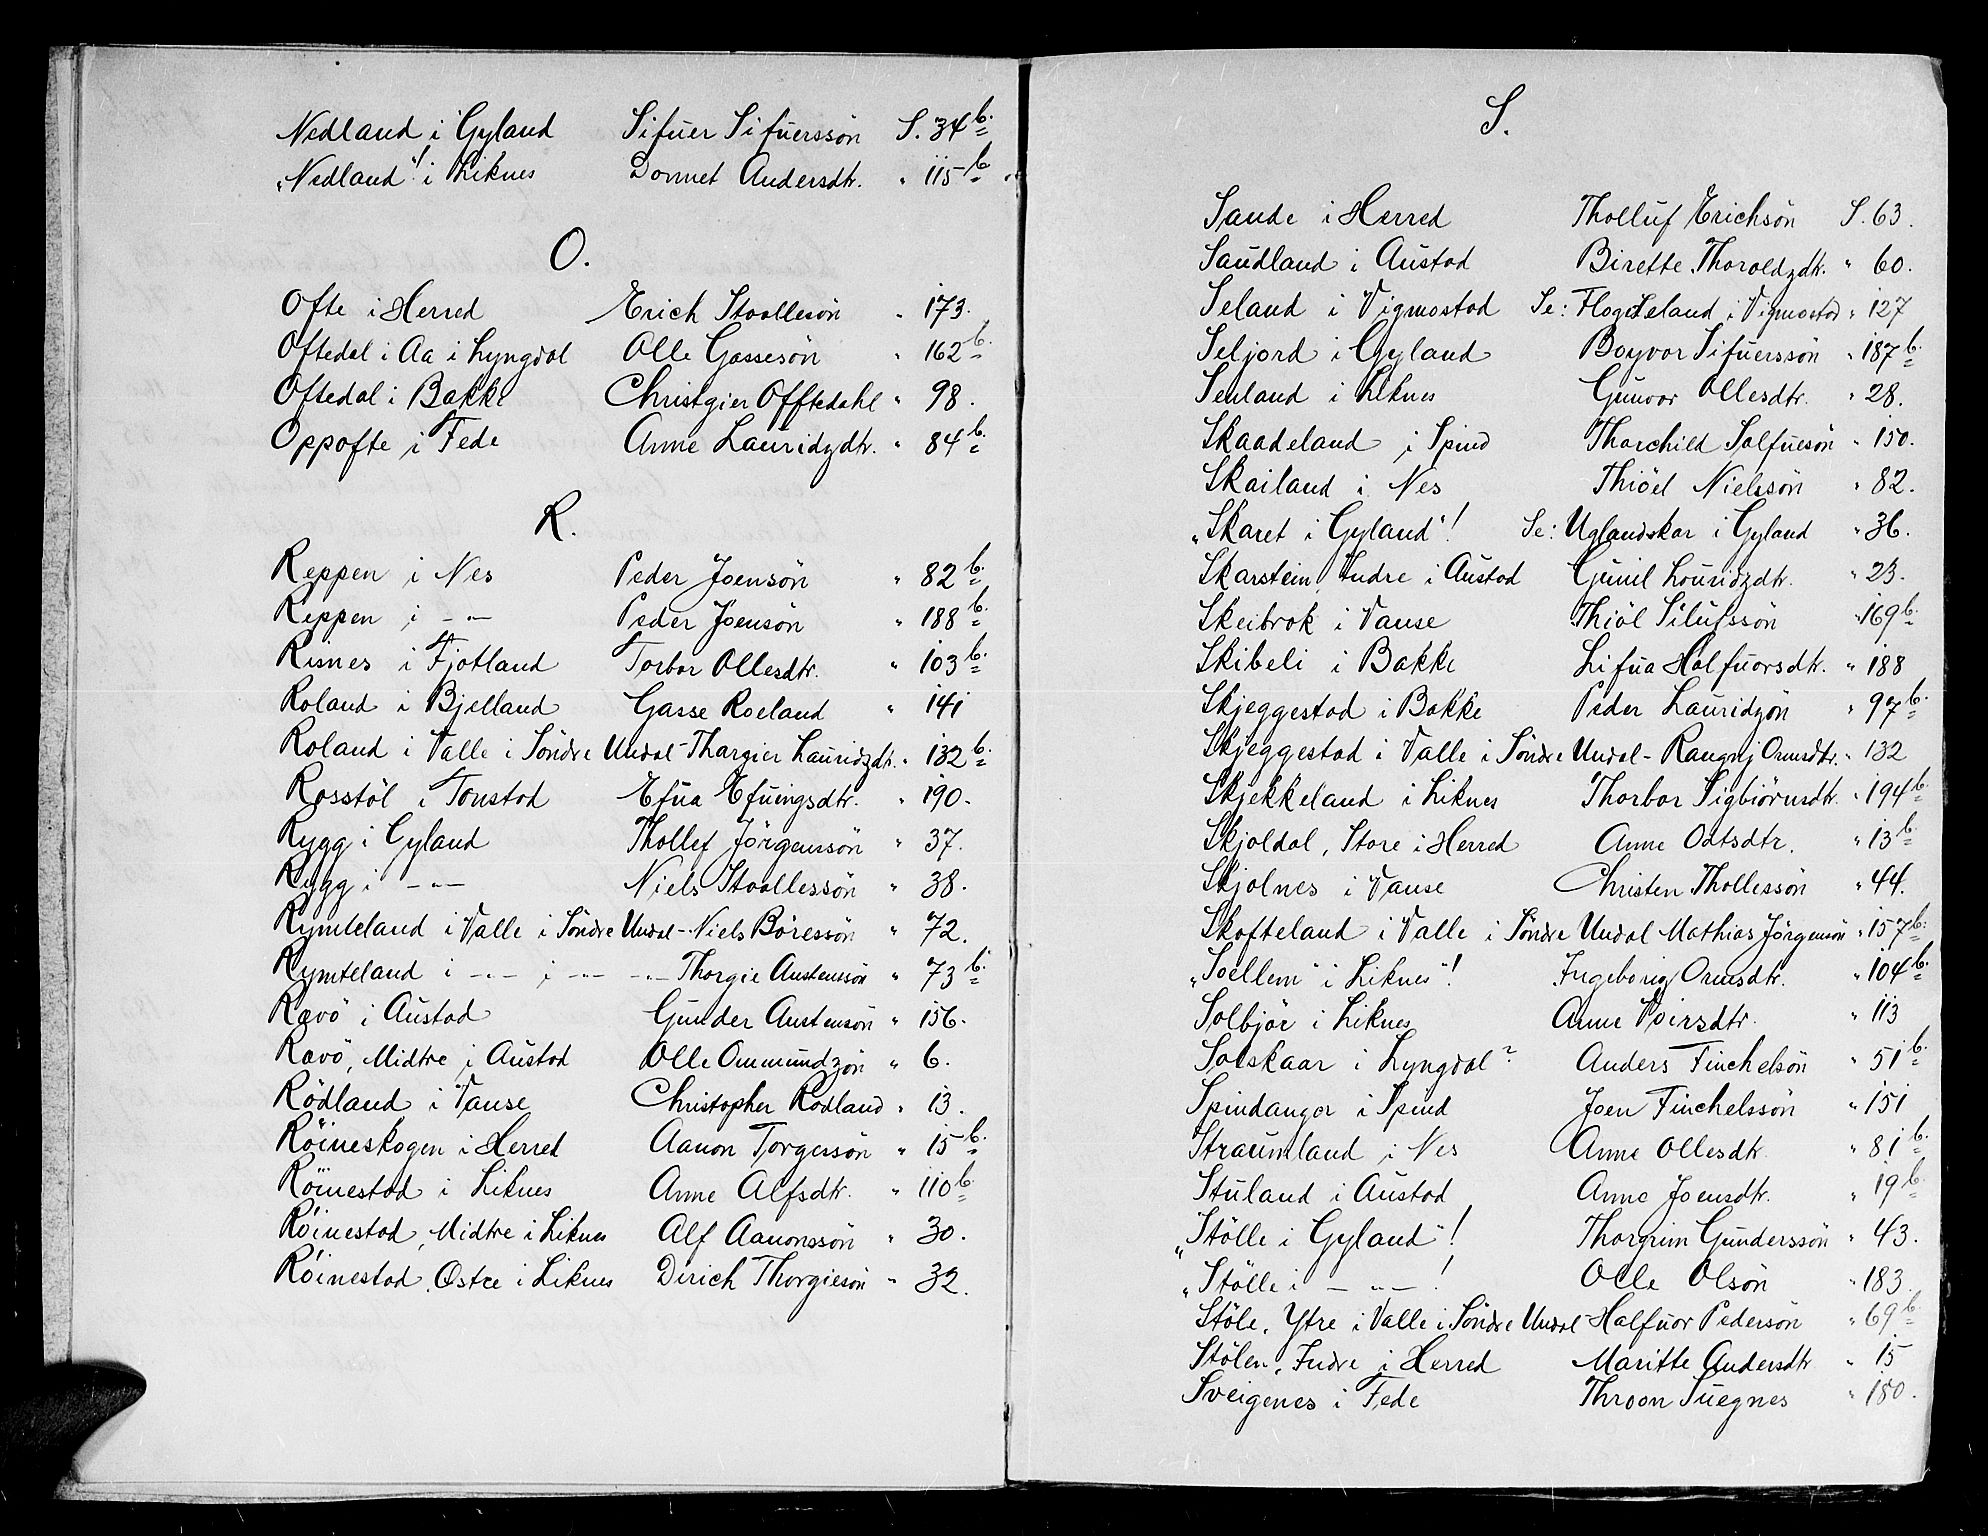 Nedland i Gyland Sifuer Sifuerssön S. 34 b.
"Nedland"! i Liknes Donnet Andersdtr. " 115 b.
O.
Ofte i Herred Erich Stoollesön " 173.
Oftedal i Aa i Lyngdal Olle Gassesön " 162 b.
Oftedal i Bakke Christgier Offtedahl " 98.
Oppofte i Fede Anne Lauridzdtr. " 84 b.
R.
Reppen i Nes Peder Joensön " 82 b.
Reppen i -"- Peder Joensön " 188 b.
Risnes i Fjotland Torbor Ollesdtr. " 103 b.
Roland i Bjelland Gasse Roeland " 141
Roland i Valle i Söndre Undal - Thargier Lauridzdtr. " 132 b.
Rosstöl i Tonstad Efua Efuingsdtr. " 190.
Rygg i Gyland Thollef Jörgenssön " 37.
Rygg i -"- Niels Stoollessön " 38.
Rymteland i Valle i Söndre Undal - Niels Böressön " 72.
Rymteland i -"- i -"- -"- Thorgie Austensön " 73 b.
Rævö i Austad Gunder Austensön " 156.
Rævö, Midtre i Austad Olle Ommundzön " 6.
Rödland i Vanse Christopher Rödland " 13.
Röineskogen i Herred Aanon Torgerssön " 15 b.
Röinestad i Liknes Anne Alfsdtr. " 110 b.
Röinestad, Midtre i Liknes Alf Aanonssön " 30.
Röinestad, Østre i Liknes Dirich Thorgiesön " 32.
S.
Sande i Herred Tholluf Erichsön S. 63.
Saudland i Austad Birette Thoroldzdtr. " 60.
Seland i Vigmostad Se: Flogeleland i Vigmostad " 127
Seljord i Gyland Boyvor Sifuerssön " 187 b.
Senland i Liknes Gunvor Ollesdtr. " 28.
Skaadeland i Spind Thorchild Solfuesön " 150.
Skailand i Nes Thiöel Nielssön " 82.
"Skaret i Gyland"! Se: Uglandskar i Gyland " 36.
Skarstein, Indre i Austad Gunil Louridzdtr. " 23.
Skeibrok i Vanse Thiöl Silufssön " 169 b.
Skibeli i Bakke Lifua Halfuorsdtr. " 188
Skjeggestad i Bakke Peder Lauridzön " 97 b.
Skjeggestad i Valle i Söndre Undal - Rangnj Ormsdtr. " 132
Skjekkeland i Liknes Thorbor Sigbiörnsdtr. " 194 b.
Skjoldal, Store i Herred Anne Odtsdtr. " 13 b.
Skjolnes i Vanse Christen Thollessön " 44.
Skofteland i Valle i Söndre Undal Mathias Jörgensön " 157 b.
"Soellem" i Liknes"! Ingeborig Ormsdtr. " 104 b.
Solbjör i Liknes Anne Voirsdtr. " 113
Solskaar i Lyngdal? Anders Finchelsön " 51 b.
Spindanger i Spind Joen Finchelssön " 151
Straumland i Nes Anne Ollesdtr. " 81 b.
Stuland i Austad Anne Joensdtr. " 19 b.
"Stölle i Gyland"! Thorgrim Gunderssön " 43.
"Stölle i -"- ! Olle Olsön " 183.
Stöle, Ytre i Valle i Söndre Undal - Halfuor Pedersön " 69 b.
Stölen, Indre i Herred Maritte Andersdtr " 15
Sveigenes i Fede Throon Suegnes " 180.